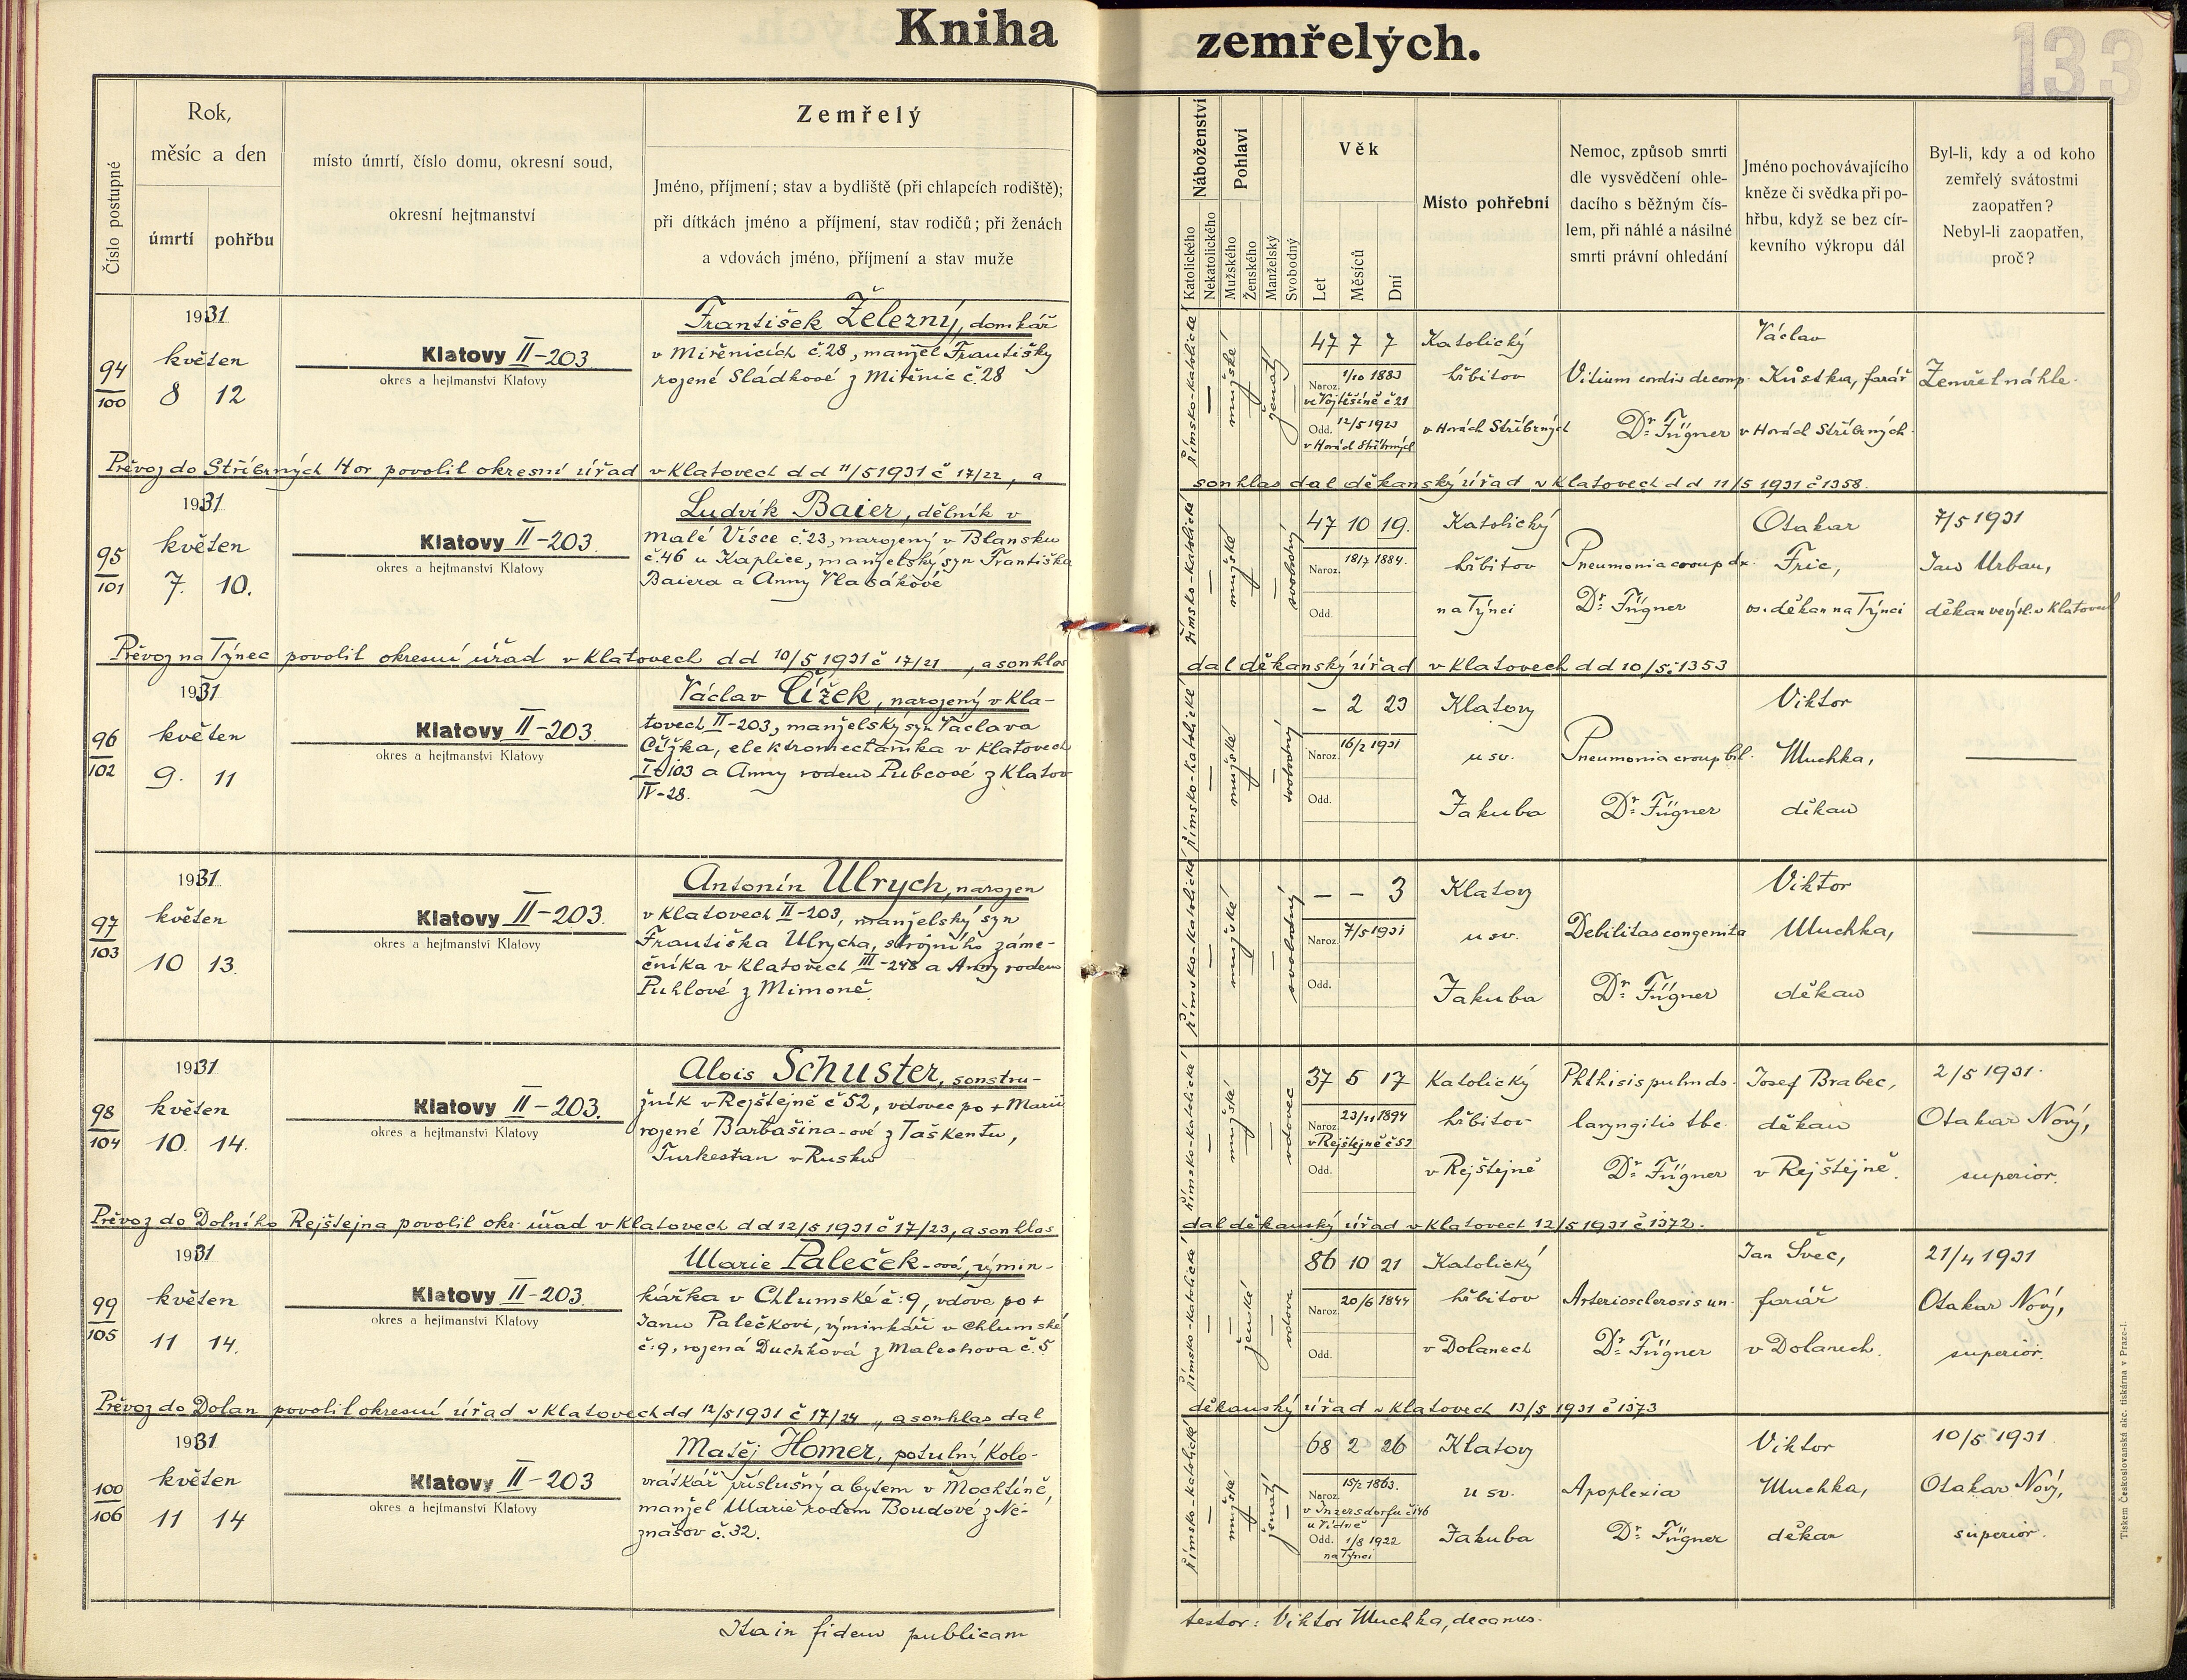 Kniha zemřelých.
133
Číslo postupné
Rok,
měsíc a den
úmrtí
pohřbu
místo úmrtí, číslo domu, okresní soud,
okresní hejtmanství
Zemřelý
Jméno, příjmení; stav a bydliště (při chlapcích rodiště);
při dítkách jméno a příjmení, stav rodičů; při ženách
a vdovách jméno, příjmení a stav muže
Náboženství
Katolického
Nekatolického
Pohlaví
Mužského
Ženského
Manželský
Svobodný
Věk
Let
Měsíců
Dní
Místo pohřební
Nemoc, způsob smrti
dle vysvědčení ohle-
dacího s běžným čís-
lem, při náhlé a násilné
smrti právní ohledání
Jméno pochovávajícího
kněze či svědka při po-
hřbu, když se bez cír-
kevního výkropu dál
Byl-li, kdy a od koho
zemřelý svátostmi
zaopatřen?
Nebyl-li zaopatřen,
proč?
94
100
1931
květen
8 12
Klatovy II-203
okres a hejtmanství Klatovy
František Železný, domkář
v Miřenicích č. 28, manžel Františky
rozené Sládkové z Miřenic č. 28
římsko-katolické
mužské
ženatý
47 7 7
Naroz. 1/10 1883
ve Vojtěšíně č 21
Odd. 12/5 1923
v Horách Stříbrných
Katolický
hřbitov
v Horách Stříbrných
Vitium cordis decomp.
Dr. Fügner
Václav
Kůstka, farář
v Horách Stříbrných.
Zemřel náhle.
Převoz do Stříbrných Hor povolil okresní úřad v Klatovech d d 11/5 1931 č 17/22, a
souhlas dal děkanský úřad v Klatovech d d 11/5 1931 č 1358.
95
101
1931
květen
7. 10.
Klatovy II-203.
okres a hejtmanství Klatovy
Ludvík Baier, dělník v
Malé Vísce č. 23, narozený v Blansku
č. 46 u Kaplice, manželský syn Františka
Baiera a Anny Vlasákové
římsko-katolické
mužské
svobodný
47 10 19.
Naroz. 18/7 1884.
Odd.
Katolický
hřbitov
na Týnci
Pneumonia croup dx.
Dr. Fügner
Otakar
Fric,
os. děkan na Týnci
7/5 1931
Jan Urban,
děkan ve výsl. v Klatovech
Převoz na Týnec povolil okresní úřad v Klatovech d d 10/5 1931 č 17/21, a souhlas
dal děkanský úřad v Klatovech d d 10/5 č 1353
96
102
1931
květen
9. 11
Klatovy II-203.
okres a hejtmanství Klatovy
Václav Čížek, narozený v Kla-
tovech II-203, manželský syn Václava
Čížka, elektromechanika v Klatovech
103 a Anny rodem Pubcové z Klatov
IV-28.
římsko-katolické
mužské
svobodný
- 2 23
Naroz. 16/2 1931
Odd.
Klatovy
u sv.
Jakuba
Pneumonia croup bil.
Dr. Fügner
Viktor
Muchka,
děkan
97
103
1931
květen
10 13.
Klatovy II-203.
okres a hejtmanství Klatovy
Antonín Ulrych, narozen
v Klatovech II-203, manželský syn
Františka Ulrycha, strojního záme-
čníka v Klatovech III-248 a Anny rodem
Puhlové z Mimoně.
římsko-katolické
mužské
svobodný
- - 3
Naroz. 7/5 1931
Odd.
Klatovy
u sv.
Jakuba
Debilitas congenita
Dr. Fügner
Viktor
Muchka,
děkan
98
104
1931
květen
10. 14.
Klatovy II-203.
okres a hejtmanství Klatovy
Alois Schuster, soustru-
žník v Rejštejně č 52, vdovec po + Marii
rozené Barbašina-ové z Taškentu,
Turkestan v Rusku
římsko-katolické
mužské
vdovec
37 5 17
Naroz. 23/11 1894
v Rejštejně č 52
Odd.
Katolický
hřbitov
v Rejštejně
Phthisis pulm ds.
laryngitis tbc.
Dr. Fügner
Josef Brabec,
děkan
v Rejštejně.
2/5 1931.
Otakar Nový,
superior.
Převoz do Dolního Rejštejna povolil okr. úřad v Klatovech d d 12/5 1931 č 17/23, a souhlas
dal děkanský úřad v Klatovech 12/5 1931 č 1372.
99
105
1931
květen
11 14.
Klatovy II-203.
okres a hejtmanství Klatovy
Marie Paleček-ová, výmin-
kářka v Chlumské č. 9, vdova po +
Janu Palečkovi, výminkáři v Chlumské
č. 9, rozená Duchková z Malechova č. 5
římsko-katolické
ženské
vdova
86 10 21
Naroz. 20/6 1844
Odd.
Katolický
hřbitov
v Dolanech
Arteriosclerosis un-
Dr. Fügner
Jan Švec,
farář
v Dolanech.
21/4 1931
Otakar Nový,
superior.
Převoz do Dolan povolil okresní úřad v Klatovech dd 12/5 1931 č 17/24, a souhlas dal
děkanský úřad v Klatovech 13/5 1931 č 1373
100
106
1931
květen
11 14
Klatovy II-203
okres a hejtmanství Klatovy
Matěj Homer, potulný kolo-
vrátkář příslušný a bytem v Mochtíně,
manžel Marie rodem Boudové z Ne-
znašov č. 32.
římsko-katolické
mužské
ženatý
68 2 26
Naroz. 15/2 1863.
v Inzersdorfu č 146
u Vídně
Odd. 1/8 1922
na Týnci
Klatovy
u sv.
Jakuba
Apoplexia
Dr. Fügner
Viktor
Muchka,
děkan
10/5 1931.
Otakar Nový,
superior.
Ita in fidem publicam
testor: Viktor Muchka, decanus.
Tiskem Českoslovanská akc. tiskárna v Praze-I.